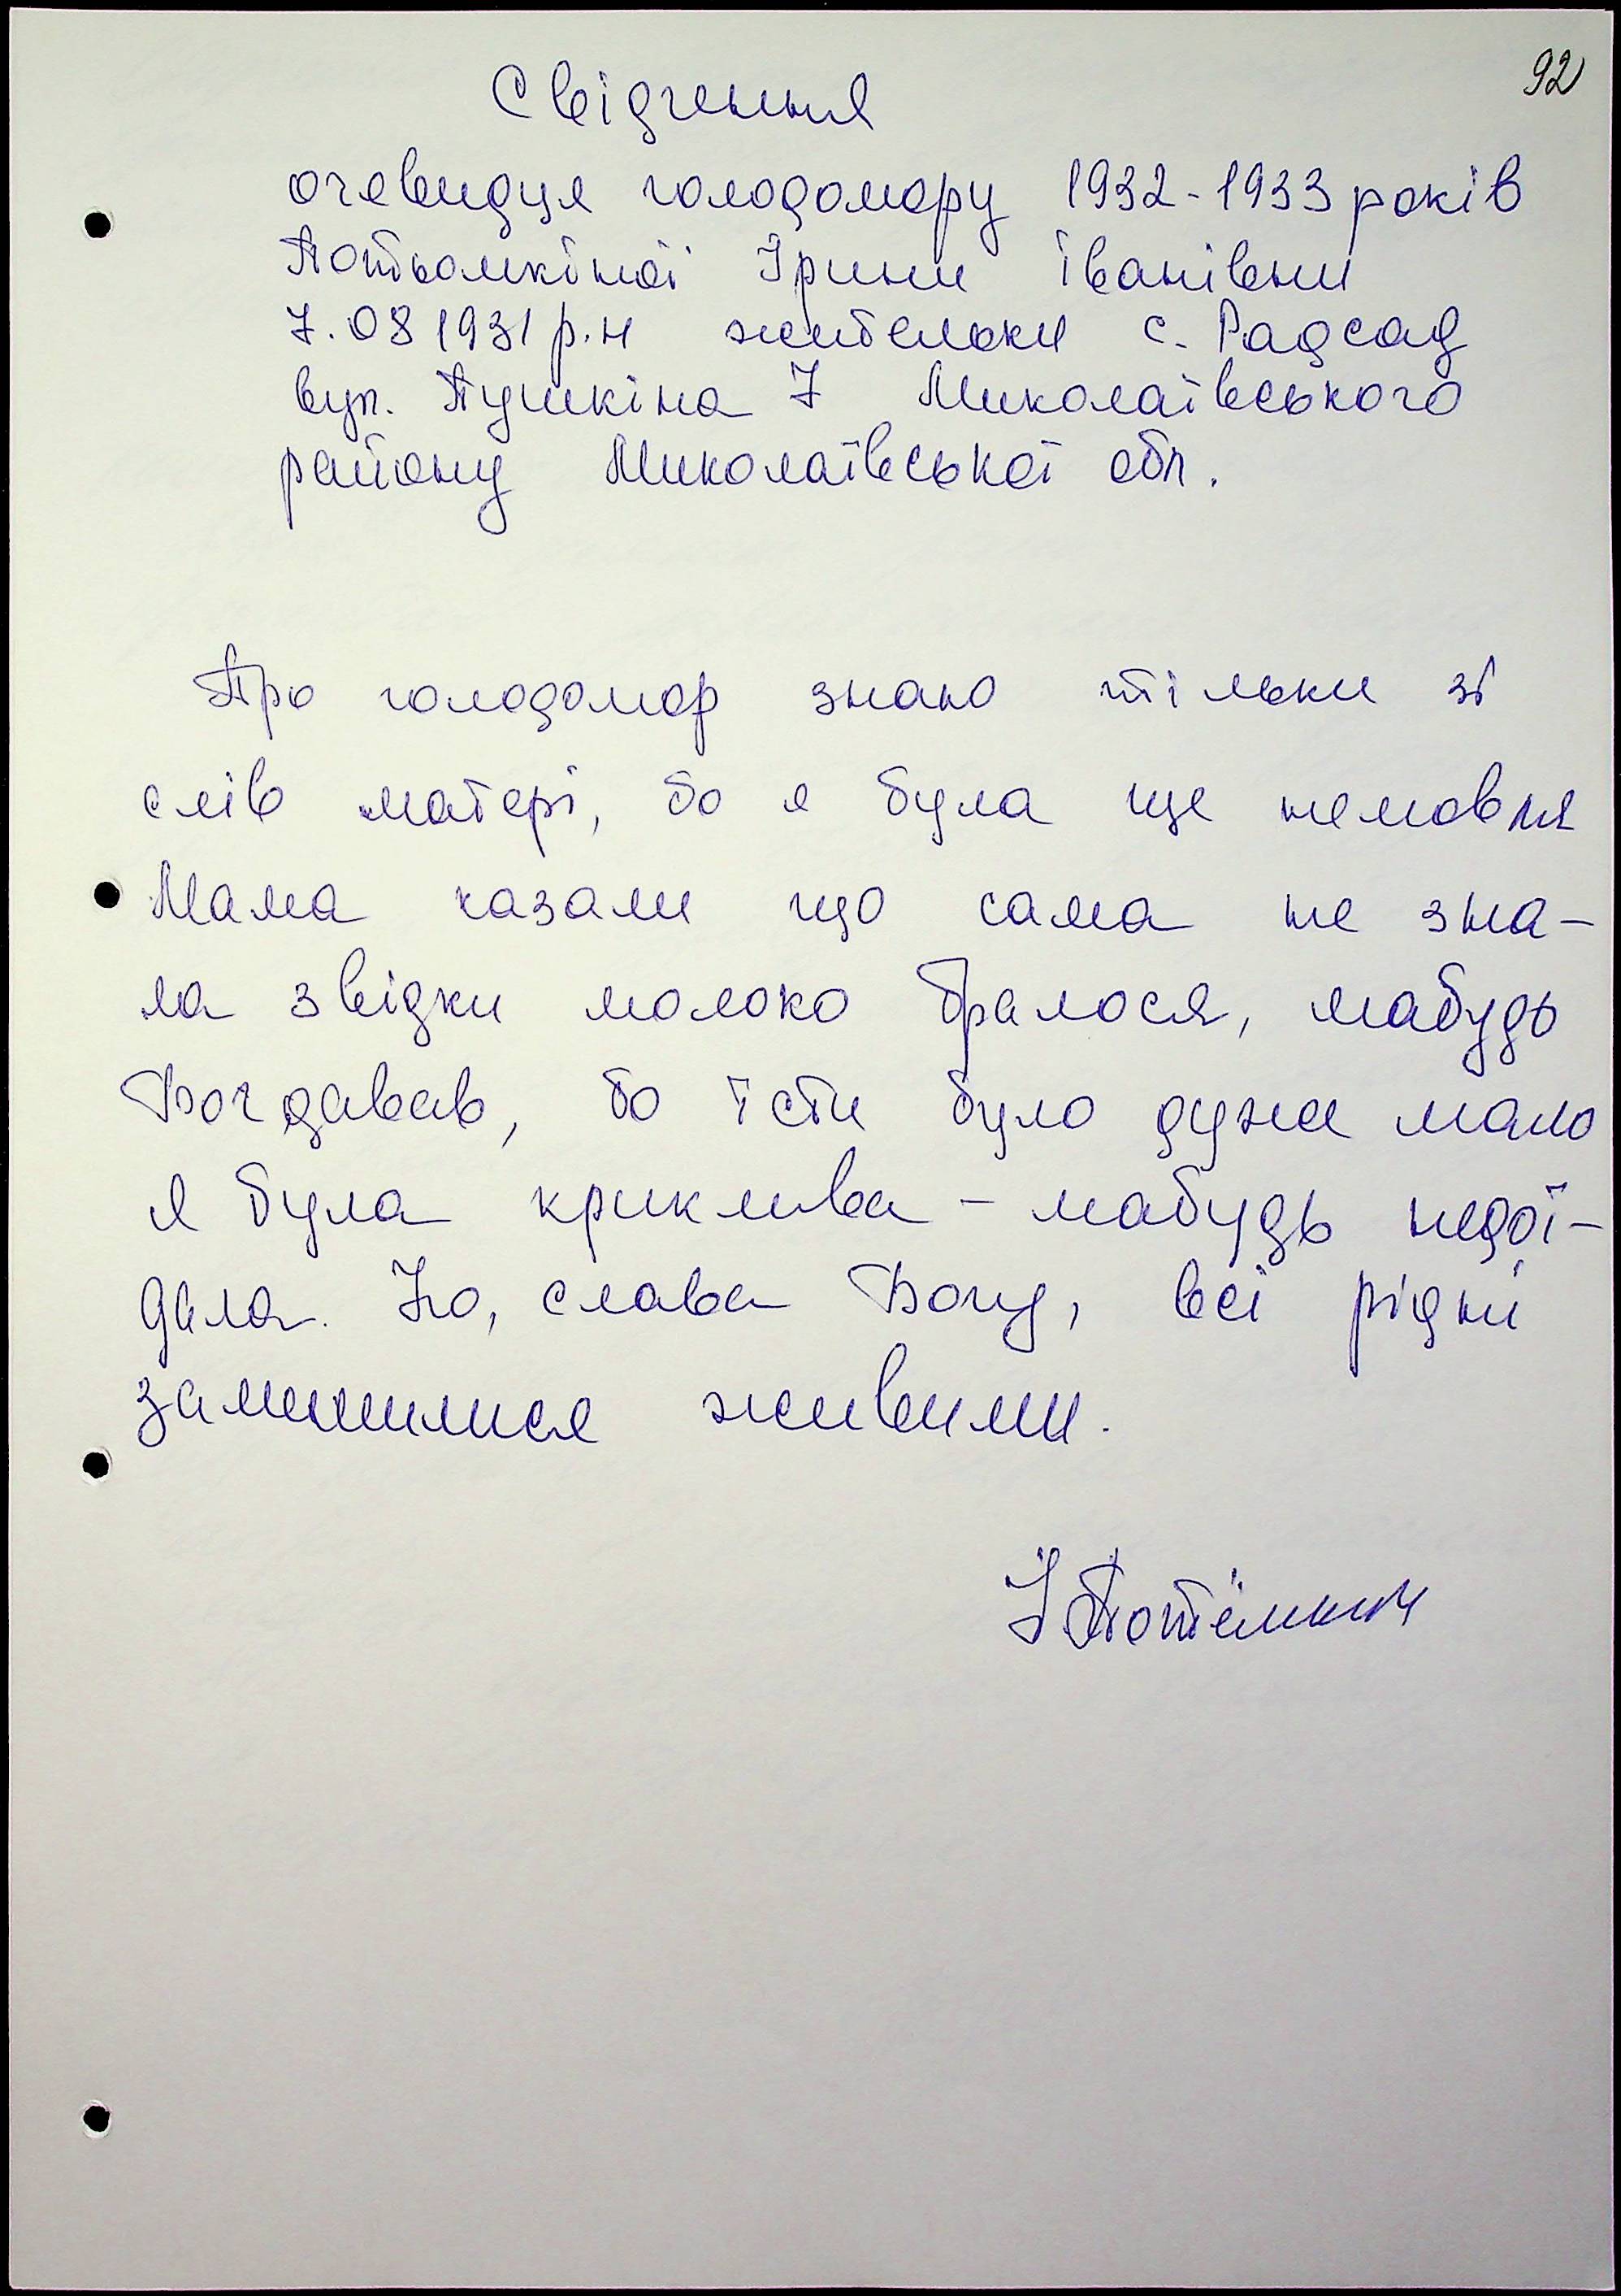 92
Свідчення
очевидця голодомору 1932-1933 років
Потьомкіної Ірини Іванівни
7.08 1931 р.н жительки с. Радсад
вул. Пушкіна 7 Миколаївського
району Миколаївської обл.
Про голодомор знаю тільки зі
слів матері, бо я була ще немовля
Мама казали що сама не зна-
ла звідки молоко бралося, мабудь
Бог давав, бо їсти було дуже мало
я була криклива – мабудь недої-
дала. Но, слава Богу, всі рідні
залишилися живими.
І Потёмкин